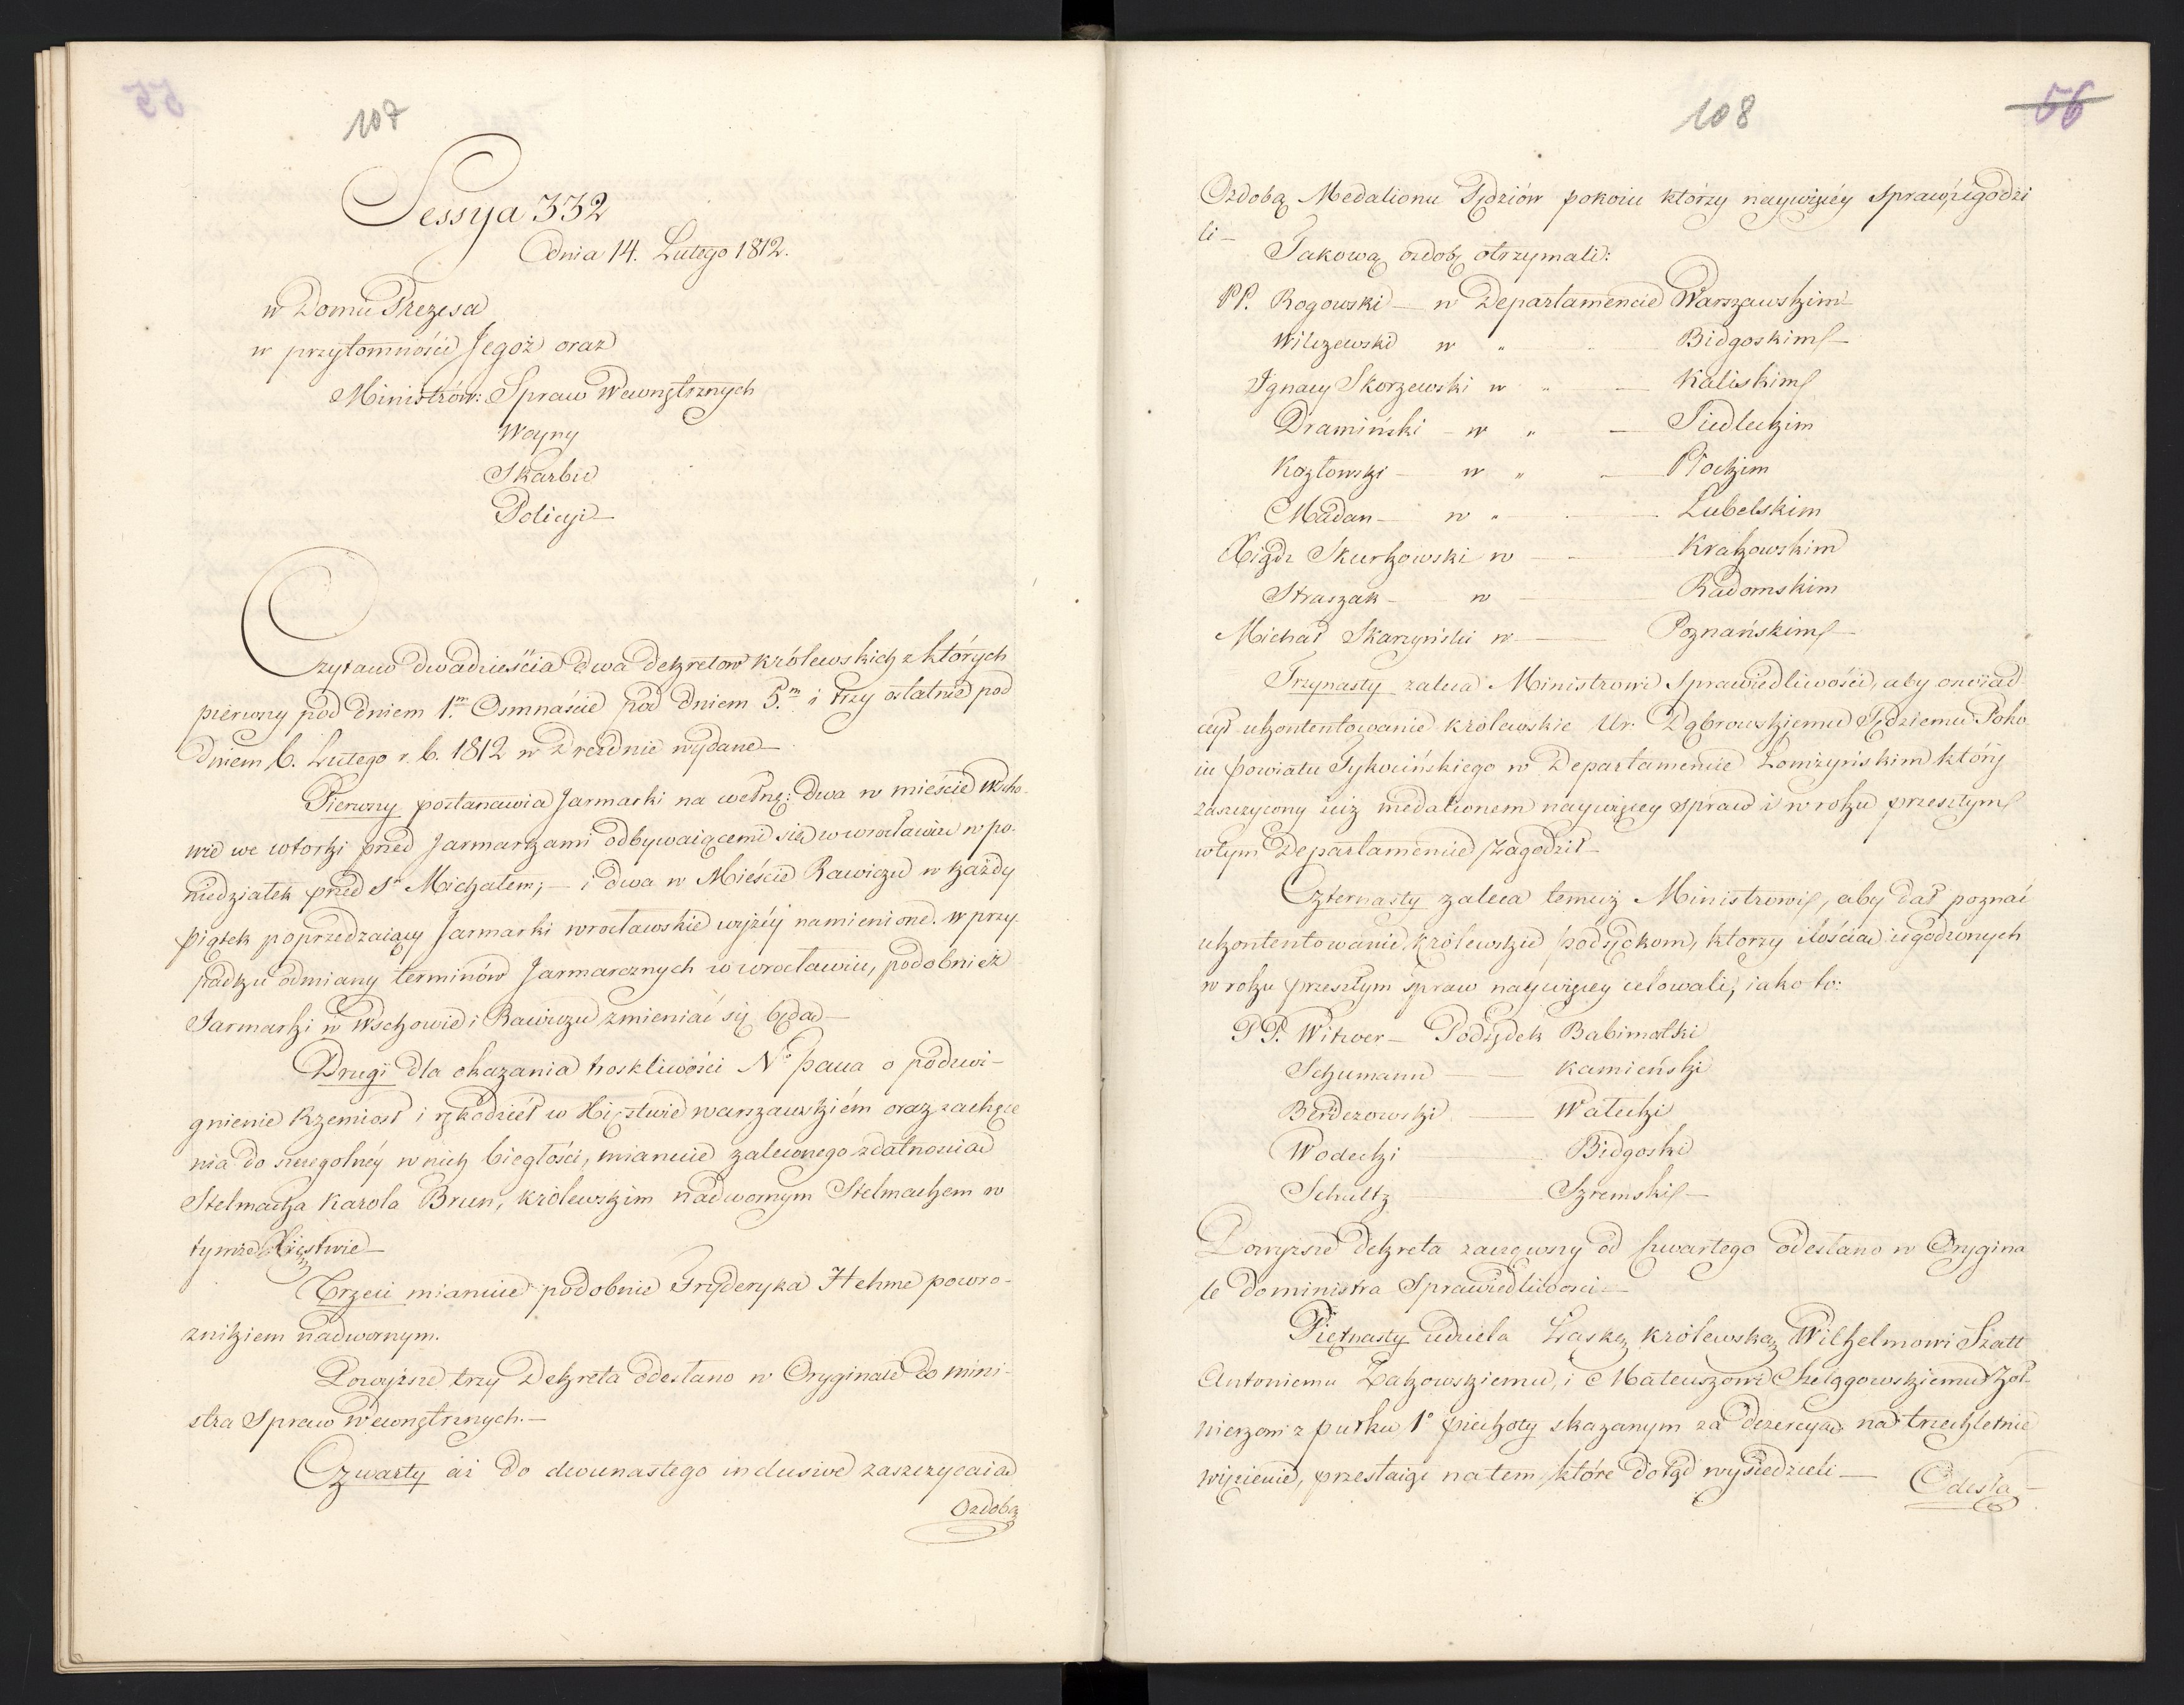 107
Sessya 332
dnia 14. Lutego 1812.
w Domu Prezesa
w przytomności Jegoż oraz
Ministrów: Spraw Wewnętrznych
Woyny
Skarbu
Policyi —
Czytano dwadzieścia dwa dekretów królewskich z których
pierwszy pod dniem 1.m Osmnaście pod dniem 5.m i trzy ostatnie pod
dniem 6. Lutego r. b. 1812 w Dreźnie wydane —
Pierwszy postanawia Jarmarki na wełnę: dwa w mieście Wscho-
wie we wtorki przed Jarmarkami odbywaiącemi się w wrocławiu w po-
niedziałek przed S. Michałem; — i dwa w Mieście Rawiczu w każdy
piątek poprzedzaiący Jarmarki wrocławskie wyżéy namienione. w przy-
padku odmiany terminów Jarmarcznych w wrocławiu, podobnież
Jarmarki w Wschowie i Rawiczu zmieniać się będą —
Drugi dla okazania troskliwości Nº pana o podzwi-
gnienie Rzemiosł i rękodzieł w Xięstwie warszawskiém oraz zachęce
nia do szczegolnéy w nich biegłości, mianuie zaleconego zdatnoscią
Stelmacha Karola Brun, królewskim nadwornym Stelmachem w
tymże Xięstwie —
Trzeci mianuie podobnie Fryderyka Hehme powro-
znikiem nadwornym.
Powyższe trzy Dekreta odesłano w Oryginale do mini-
stra Spraw Wewnętrznych. —
Czwarty aż do dwunastego inclusive zaszczycaią
Ozdobą
108
56
Ozdobą Medalionu Sędziów pokoiu którzy naywięcéy Spraw zgodzi
li —
Takową ozdobę otrzymali:
PP. Rogowski — w Departamencie Warszawskim
Wilczewski w „ Bidgoskim —
Ignacy Skorzewski w „ — Kaliskim
Dramiński — w „ — Siedleckim
Kozłowski — w „ — Płockim
Madan — w „ — Lubelskim
Xiądz Skurkowski w — Krakowskim
Straszak — w — Radomskim
Michał Skarzyński w — Poznańskim —
Trzynasty zaleca Ministrowi Sprawiedliwości, aby oswiad
czył ukontentowanie królewskie Ur. Dąbrowskiemu Sędziemu Poko
iu powiatu Tykocińskiego w Departamencie Łomżyńskim który
zaszczycony iuż medalionem naywięcey spraw i w roku przeszłym
w tym Departamencie zagodził —
Czternasty zaleca temuż Ministrowi, aby dał poznać
ukontentowanie królewskie podsędkom, ktorzy ilością ugodzonych
w roku przeszłym spraw naywięcey celowali, iako to:
PP. Witwer — Podsędek Babimotski
Schumann — Kamieński
Berdezowski — Wałecki
Wodecki — Bidgoski
Schultz — Szremski —
Powyższe dekreta zacząwszy od czwartego odesłano w Orygina
le do ministra Sprawiedliwosci —
Piętnasty udziela Łaskę królewską Wilhelmowi Szatt
Antoniemu Żakowskiemu, i Mateuszowi Szelągowskiemu Żoł-
nierzom z pułku 1º piechoty skazanym za dezercyą na trzechletnie
więzienie, przestaiąc na tem które dotąd wysiedzieli —
Odesła —